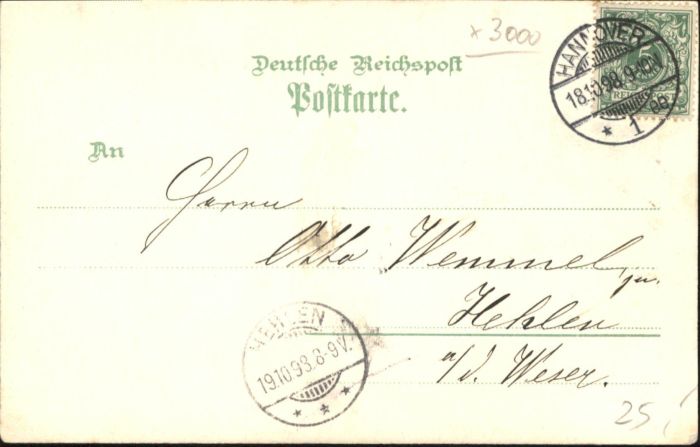 x 3000
Deutsche Reichspost
Postkarte.
HANNOVER
18.10.98. 9-10N.
* 1
5
REICHSPOST
An
Herrn
Otto Wemmel
Hehlen
a/d. Weser.
HEHLEN
19.10.98. 8-9V.
* * *
25,